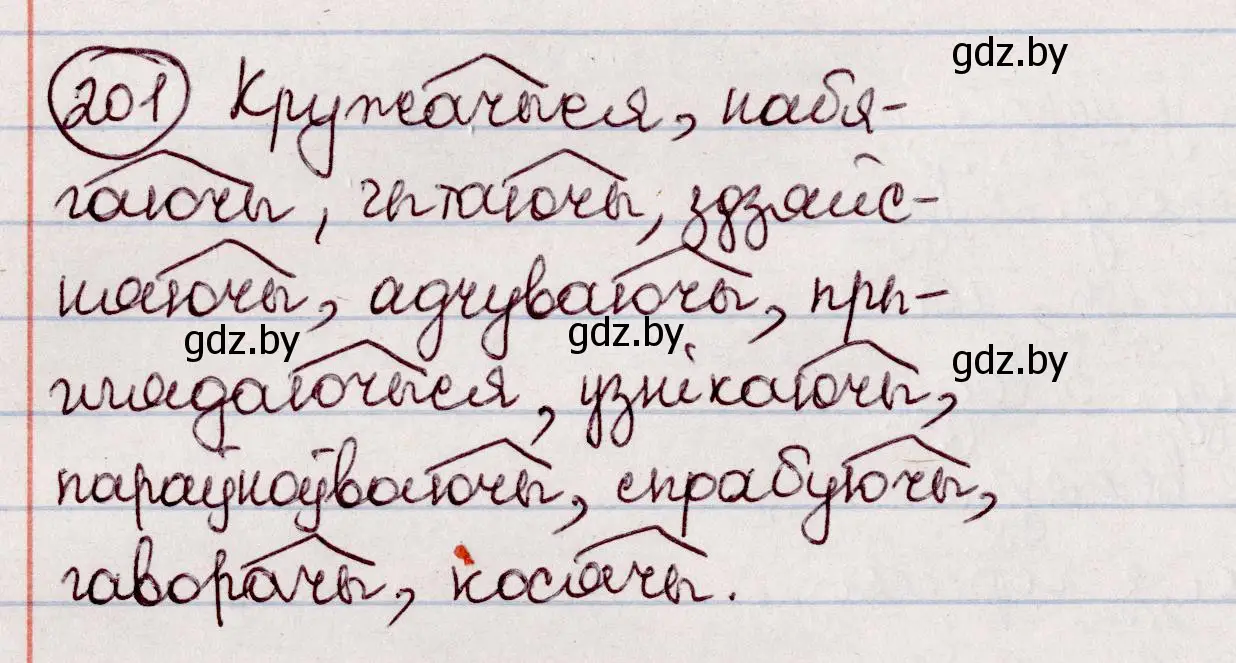 201 Кружачыся, набя-
гаючы, чытаючы, здзяйс-
няючы, адчуваючы, пры-
глядаючыся, узнікаючы,
параўноўваючы, спрабуючы,
гаворачы, косячы.
gdz.by
gdz.by
gdz.by
gdz.by